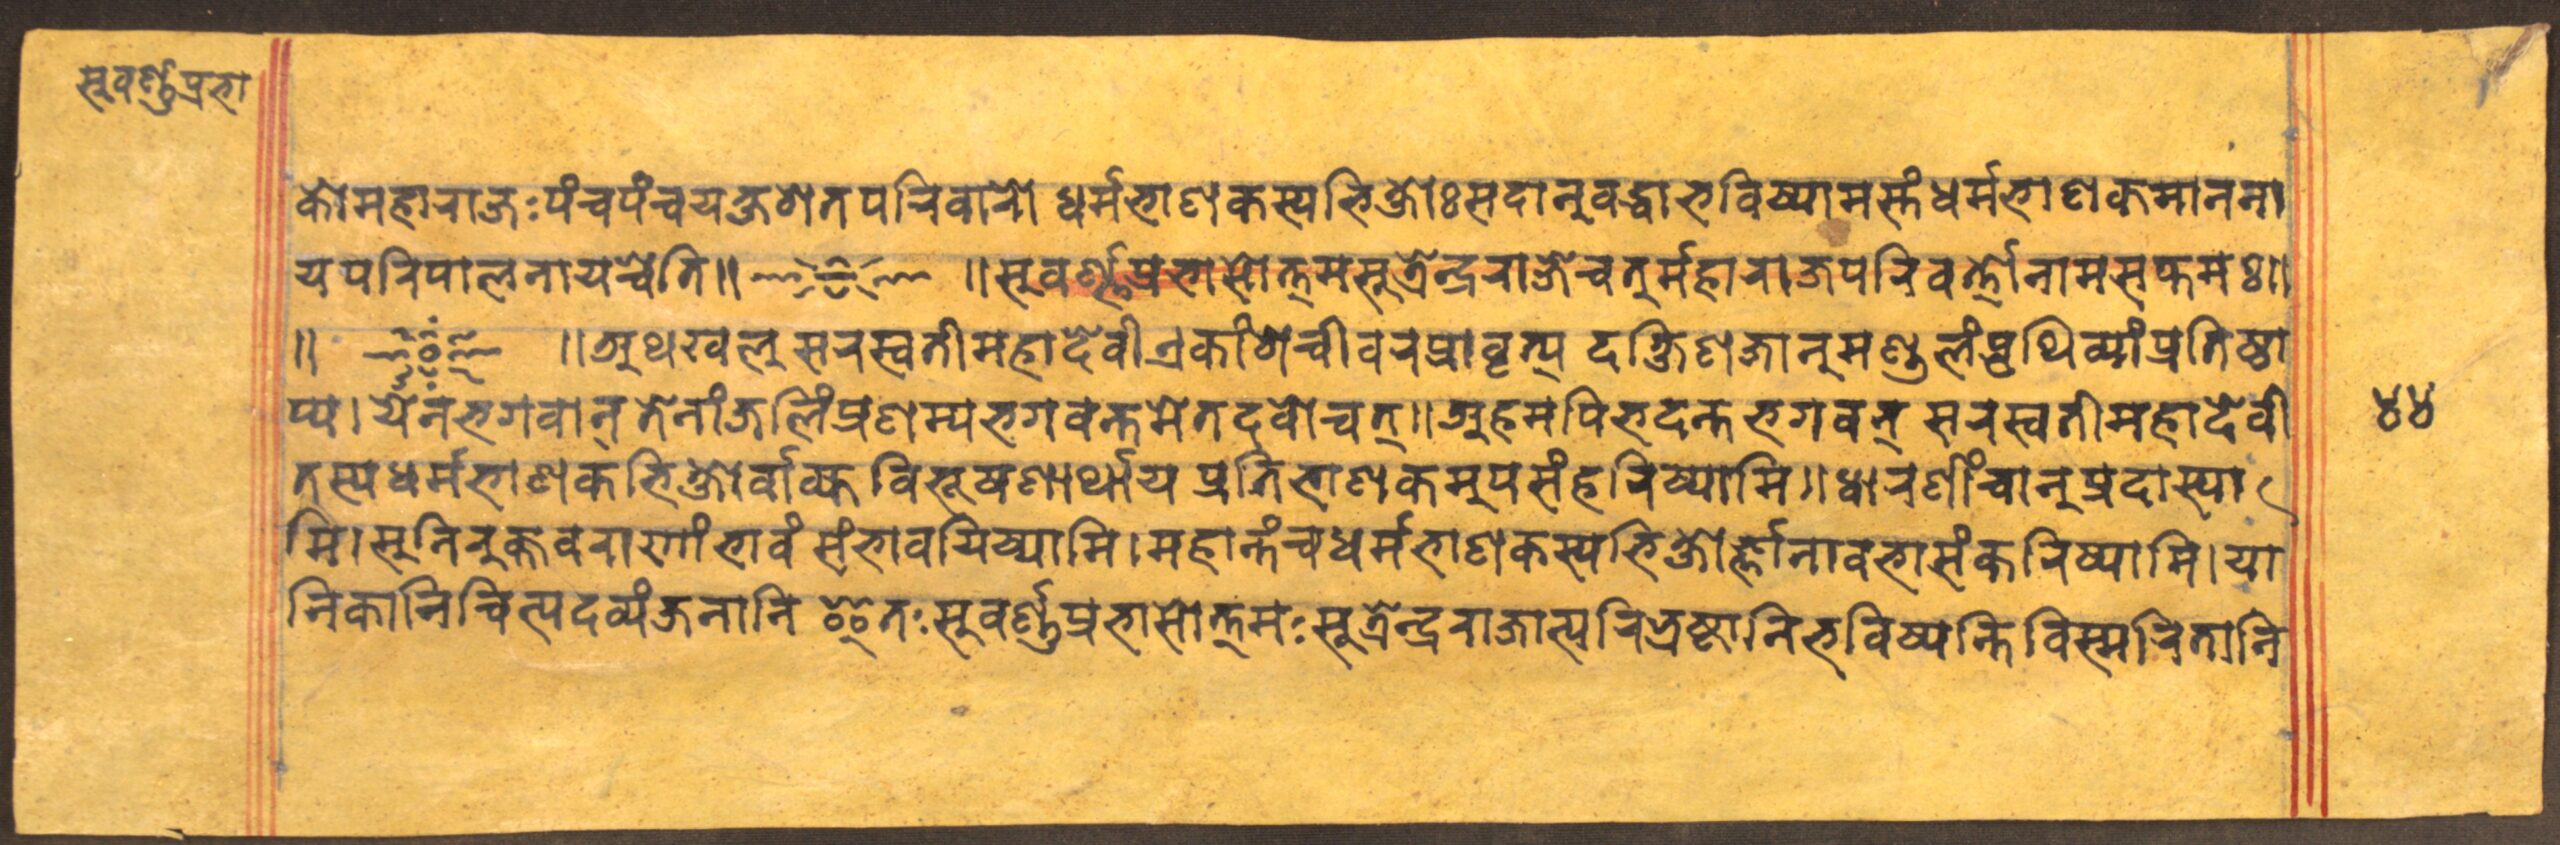 सुवर्ण्णप्रभा
को महाराजः पंच पंच यक्षशेत परिवारो धर्मभाणकस्य भिक्षोः सदानुवद्धा भविष्यामस्तं धर्मभाणकमानना
य परिपालनाय चेति॥ ॥सुवर्ण्णप्रभासोत्तमसूत्रेन्द्रराजे चतुर्महाराजपरिवर्त्तो नाम सप्तमः॥
॥ ॥अथ खलु सरस्वती महादेवी एकांशे चीवर प्रावृत्य दक्षिण जानुमण्डुलं पृथिव्यां प्रतिष्ठा
प्य। येनं भगवान् तेनांजलिं प्रणम्य भगवन्तमेतदवोचत्॥ अहमपि भदन्त भगवन् सरस्वती महादेवी
तस्य धर्मभाणक भिक्षोर्वाक्य विभूषणार्थाय प्रतिभाणकमुपसंहरिष्यामि॥ धारणीं चानुप्रदास्या
मि। सुनिरुक्तवराणां भावं संभावयिष्यामि। महान्तं च धर्मभाणकस्य भिक्षोर्ज्ञानावभासं करिष्यामि। या
नि कानिचित्पदव्यंजनानि इतः सुवर्ण्णप्रभासोत्तमः सूत्रेन्द्रराजात्परिभ्रष्टानि भविष्यन्ति विस्मरितानि
४४